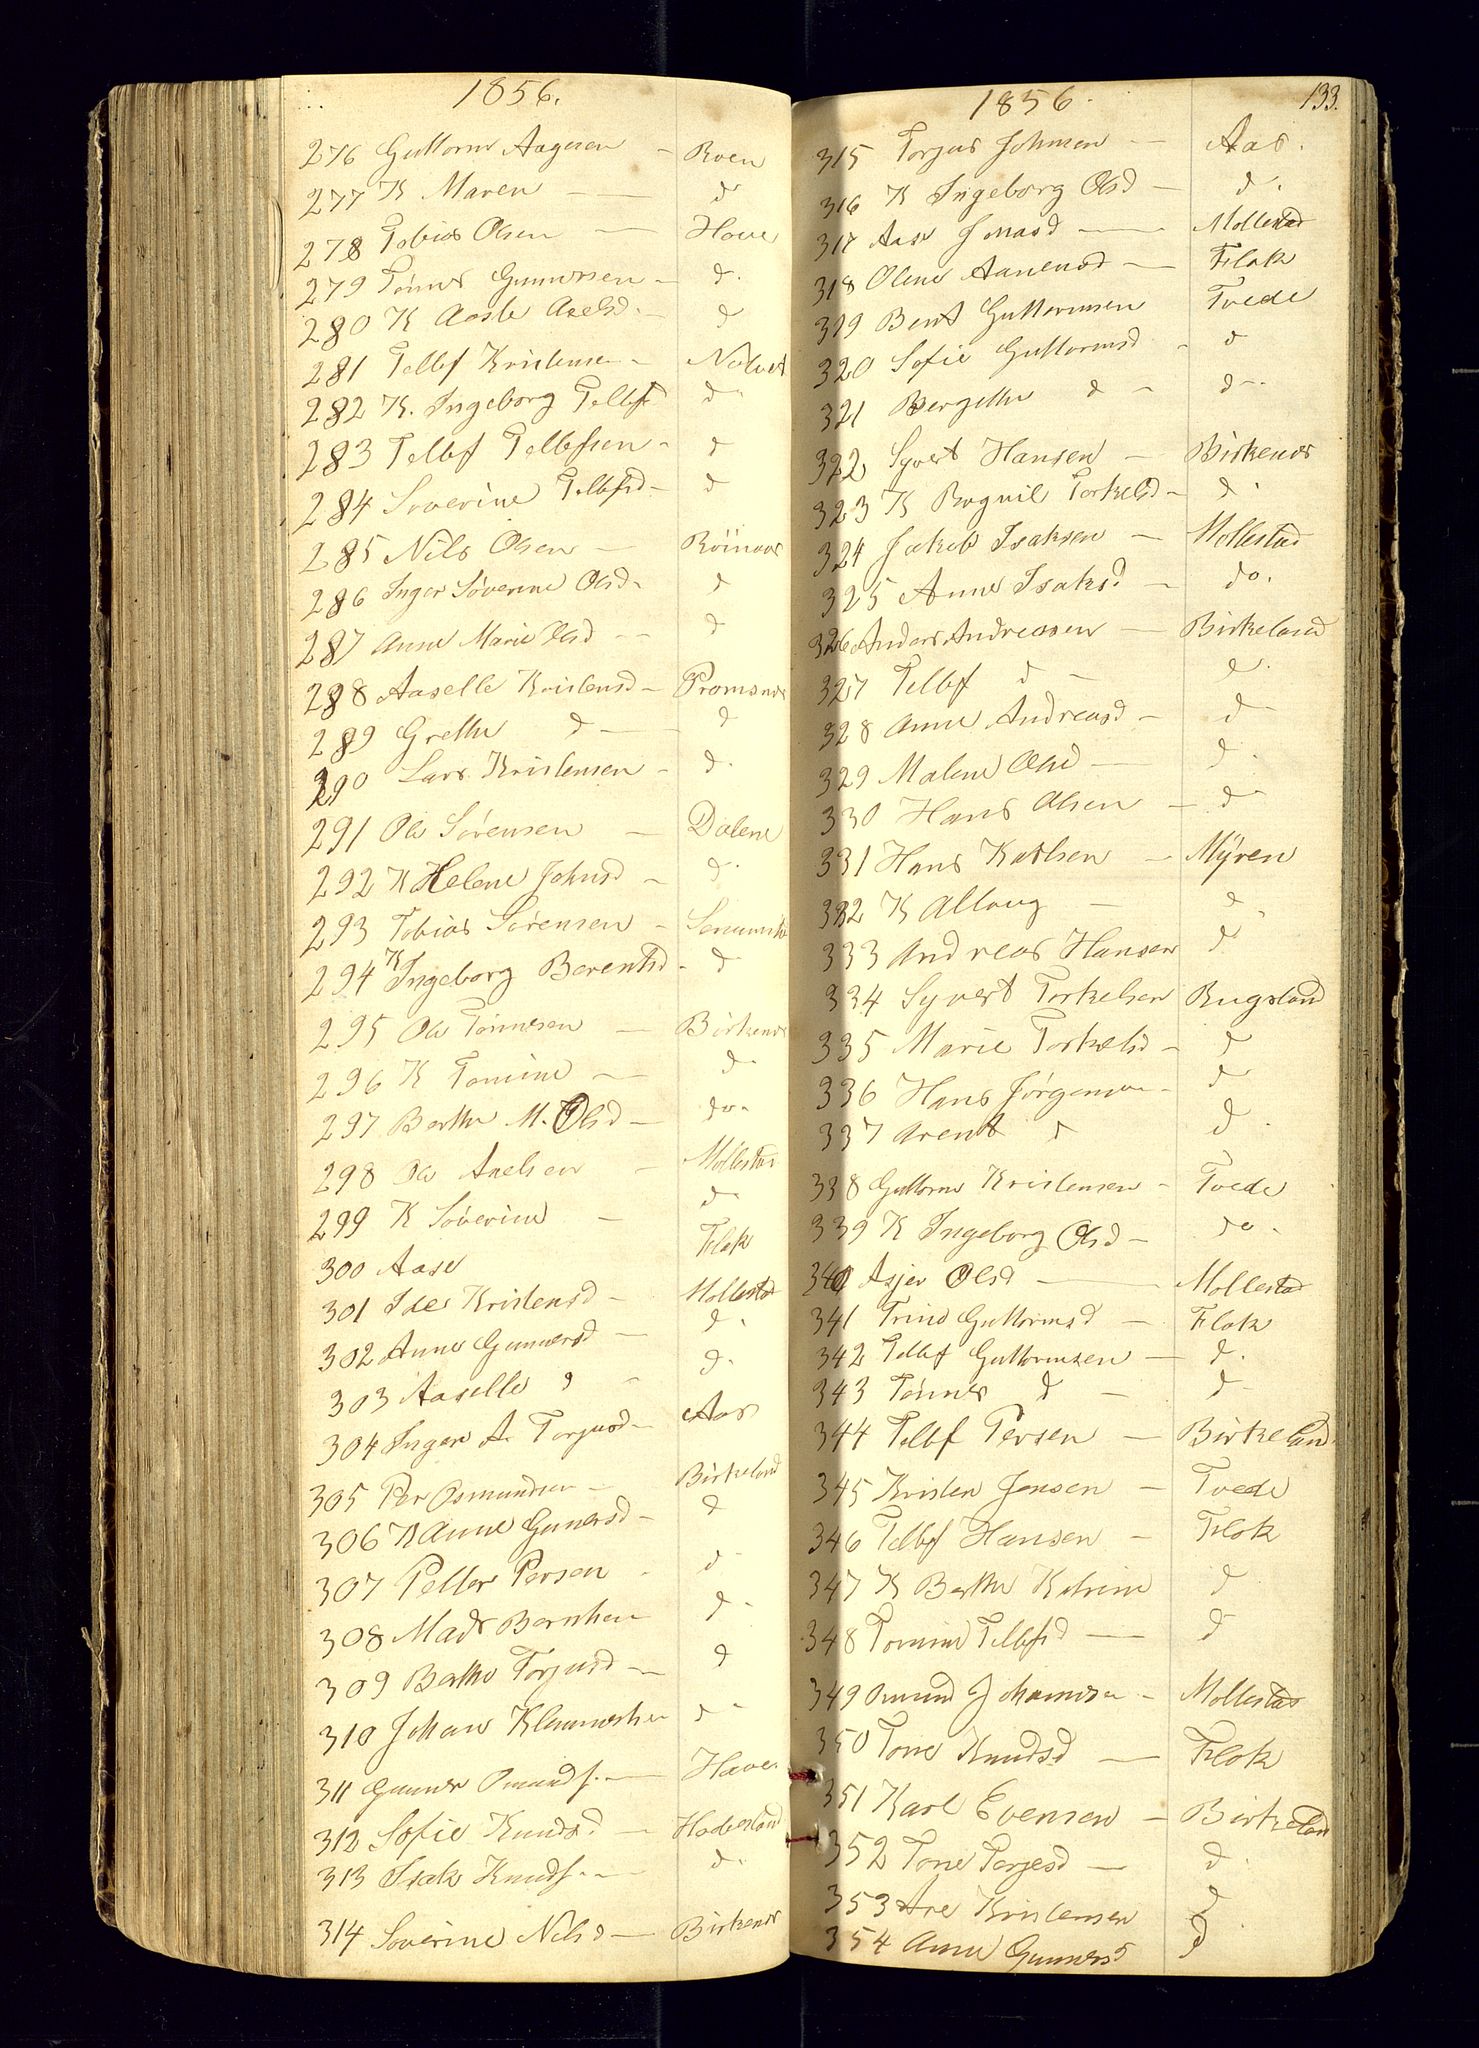 1856.
276 Guttorm Aagesen - Roen
277 K Maren - d
278 Tobias Olsen - Hove
279 Tønnes Gunnersen - d.
280 K Aasle Axelsd. - d
281 Tellef Kristensen -
282 K. Ingeborg Tellefs d
283 Tellef Tellefsen - d
284 Severine Tellefsd - d
285 Nils Olsen -
286 Inger Søverine Olsd - d
287 Anne Marie Olsd - d
288 Aaselle Kristensd - Promsnes
289 Grethe d - d
290 Lars Kristensen - d.
291 Ole Sørensen - Dalene
292 K Helene Johnsd - d.
293 Tobias Sørensen -
294 K Ingeborg Berentsd - d
295 Ole Tønnesen - Birkenes
296 K Tomine - d
297 Berthe M. Olsd - do.
298 Ole Axelsen - Mollestad
299 K Søverine - d
300 Aase Flak
301 Ides Kristensd - Mollestad
302 Anne Gunnersd - d.
303 Aaselle d - d.
304 Inger A. Torjusd - Aas
305 Per Osmundsen - Birkeland
306 K Anne Gunersd - d
307 Petter Persen - d
308 Mads Bernhsen d.
309 Berthe Torjusd - d
310 Johan Klemmetsen d
311 Gunner Omunds. - Have
312 Sofie Knudsd - Haberland
313 Isak Knuds. - d.
314 Soverine Nilsd - Birkenes
1856. 133.
315 Torjus Johnsen - Aas.
316 K Ingeborg Olsd - d.
317 Aase Jonasd - Mollestad
318 Olene Aanensd - Flak
319 Bent Guttormsen Tvede
320 Sofie Guttormsd - d
321 Bergethe d - d.
322 Syvert Hansen - Birkenes
323 K Rognil Torkelsd - d.
324 Jakob Isaksen - Mollestad
325 Anne Isaksd - do.
326 Anders Andreassen - Birkeland
327 Tellef d - d.
328 Anne Andreasd - d
329 Malene Olsd - d.
330 Hans Olsen - d
331 Hans Karlsen - Mÿren
332 K Alloug - d
333 Andreas Hansen d
334 Syvert Torkelsen Rugsland
335 Marie Torkelsd - d
336 Hans Jørgensen - d
337 Arent d d.
338 Guttorm Kristensen - Tvede
339 K Ingeborg Olsd - do.
340 Asjer Olsd - Mollestad
341 Trine Guttormsd - Flak
342 Tellef Guttormsen - d.
343 Tønnes d - d
344 Tellef Persen - Birkeland.
345 Kristen Jensen - Tvede
346 Tellef Hansen - Flak
347 K Berthe Katrine d
348 Tomine Tellefsd - d
349 Omund Johannsen - Mollestad
350 Tone Knudsd - Flak
351 Karl Evensen - Birkeland
352 Tone Terjesd - d.
353 Are Kristensen d
354 Anne Gunnersd d